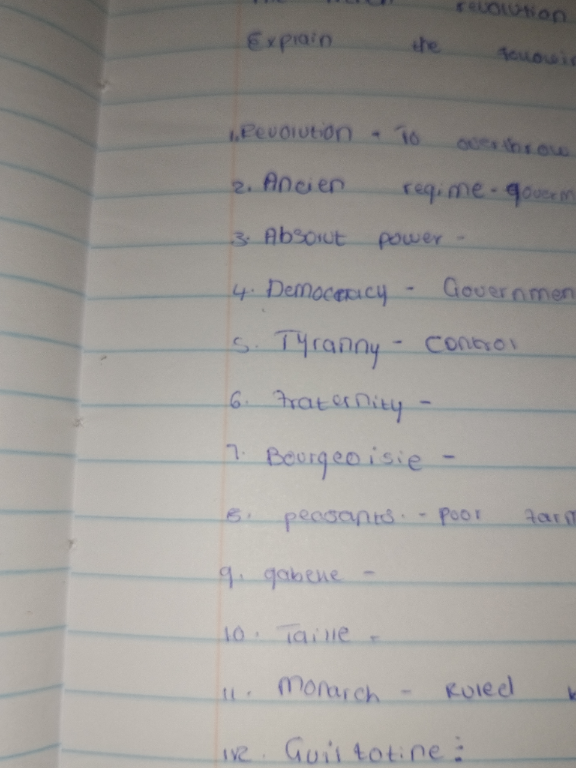 revolution
Explain the
1. Revolution - To overthrow
2. Ancien regime - governm
3. Absolut power -
4. Democracy - Governmen
5. Tyranny - Control
6. Fraternity -
7. Bourgeoisie -
8. peasants. - poor farm
9. gabelle -
10. Taille -
11. Monarch - Ruled
12. Guillotine :